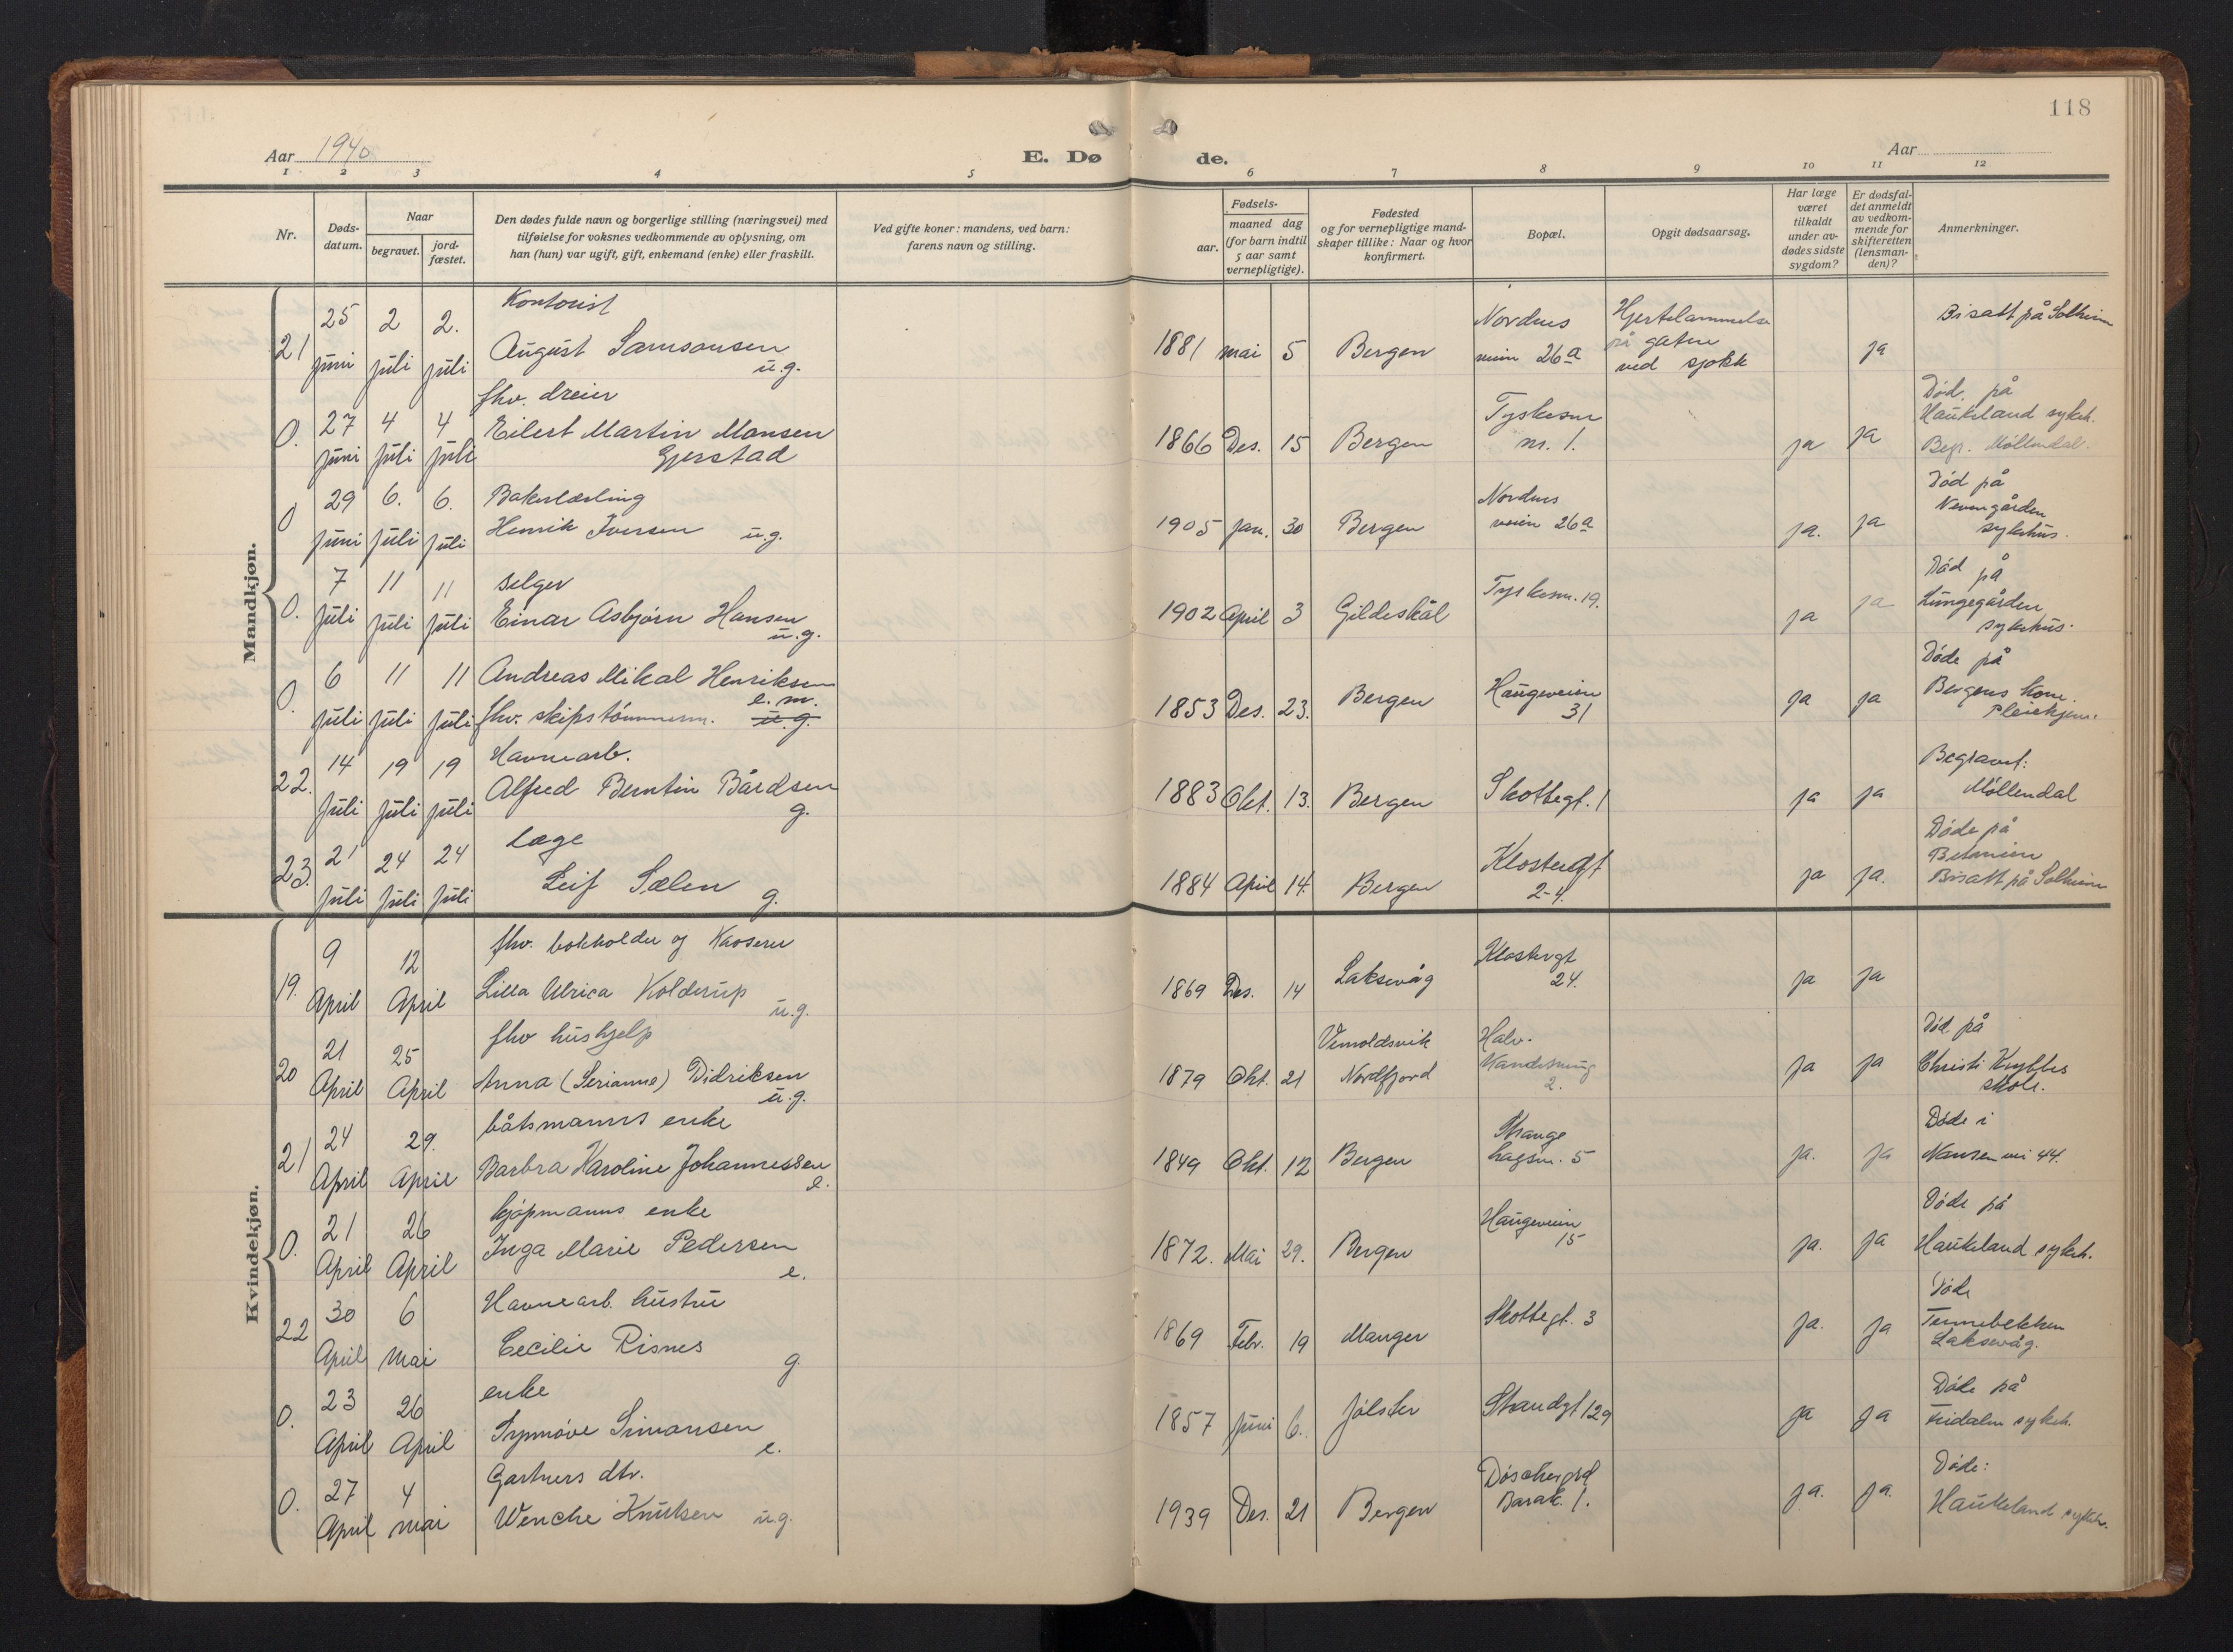 118
Aar 1940
E. Dø de.
Aar
1 2 3 4 5 6 7 8 9 10 11 12
Nr.
Døds-
datum.
Naar
begravet.
jord-
fæstet.
Den dødes fulde navn og borgerlige stilling (næringsvei) med
tilføielse for voksnes vedkommende av oplysning, om
han (hun) var ugift, gift, enkemand (enke) eller fraskilt.
Ved gifte koner: mandens, ved barn:
farens navn og stilling.
Fødsels-
aar.
maaned dag
(for barn indtil
5 aar samt
vernepligtige).
Fødested
og for vernepligtige mand-
skaper tillike: Naar og hvor
konfirmert.
Bopæl.
Opgit dødsaarsag.
Har læge
været
tilkaldt
under av-
dødes sidste
sygdom?
Er dødsfal-
det anmeldt
av vedkom-
mende for
skifteretten
(lensman-
den)?
Anmerkninger.
Mandkjøn.
21 25 juni 2 juli 2. juli
Kontorist
August Samsonsen
u.g.
1881 mai 5 Bergen
Nordnes
veien 26a
Hjertelammelse
på gaten
ved sjokk
ja
Bisatt på Solheim
0. 27 juni 4 juli 4 juli
fhv. dreier
Eilert Martin Monsen
Gjerstad
1866 Des. 15 Bergen
Tyskesm
nr. 1.
ja ja
Død. på
Haukeland sykeh.
Begr. Møllendal.
0 29 juni 6. juli 6. juli
Bakerlærling
Henrik Iversen u.g.
1905 jan. 30 Bergen
Nordnes
veien 26a
ja. ja
Død på
Nevengården
sykehus.
0. 7 juli 11 juli 11 juli
selger
Einar Asbjørn Hansen
u.g.
1902 April 3 Gildeskål
Tyskesm. 19.
ja ja
Død på
Lungegården
sykehus.
0. 6 juli 11 juli 11 juli
Andreas Mikal Henriksen
e.m.
fhv. skipstømmerm. u.g.
1853 Des. 23. Bergen
Haugeveien
31
ja ja
Døde på
Bergens kom.
Pleiehjem.
22. 14 juli 19 juli 19 juli
Havnearb.
Alfred Berntin Bårdsen
g.
1883 Okt. 13. Bergen
Skottegt. 1
ja ja
Begravet:
Møllendal
23. 21 juli 24 juli 24 juli
læge
Leif Sælen g.
1884 April 14. Bergen
Klostergt
2-4.
ja ja.
Døde på
Betanien
Bisatt på Solheim
Kvindekjøn.
19. 9 April 12 April
fhv. bokholder og Kasserer
Lilla Ulrica Kolderup
u.g.
1869 Des. 14 Laksevåg
Klostergt
24.
ja ja
20 21 April 25 April
fhv hushjelp
Anna (Serianne) Didriksen
u.g.
1879 Okt. 21
Vemoldsvik
Nordfjord
Halv.
Kandismug
2.
ja ja
Død på
Christi Krybbes
skole.
21 24 April 29. April
båtsmanns enke
Barbra Karoline Johannessen
e.
1849 Okt. 12 Bergen
Strange
hagsm. 5
ja. ja
Døde i
Nansen vei 44.
0. 21 April 26 April
kjøpmanns enke
Inga Marie Pedersen
e.
1872. Mai 29. Bergen
Haugeveien
15
ja. ja
Døde på
Haukeland sykeh.
22 30 April 6 mai
Havnearb. hustru
Cecilie Risnes
g.
1869 Febr. 19 Manger
Skottegt. 3
ja. ja
Døde
Tennebekken
Laksevåg.
0. 23 April 26 April
enke
Synnøve Simonsen
e.
1857 juni 6. Jølster
Strandgt 129
ja ja
Døde på
Fridalen sykeh.
0. 27 April 4 mai
Gartners dtr.
Wenche Knutsen u.g.
1939 Des. 21 Bergen
Døschergrd
Barak. 1.
ja. ja.
Døde:
Haukeland sykeh.